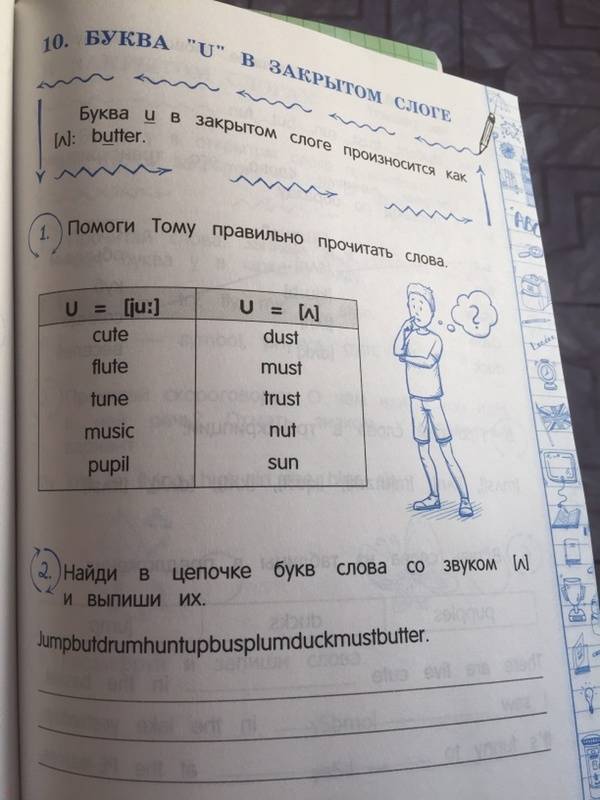 10. БУКВА "U" В ЗАКРЫТОМ СЛОГЕ
Буква u в закрытом слоге произносится как
[ʌ]: butter.
1. Помоги Тому правильно прочитать слова.
U = [ju:] U = [ʌ]
cute dust
flute must
tune trust
music nut
pupil sun
?
ABC
2. Найди в цепочке букв слова со звуком [ʌ]
и выпиши их.
Jumpbutdrumhuntupbusplumduckmustbutter.